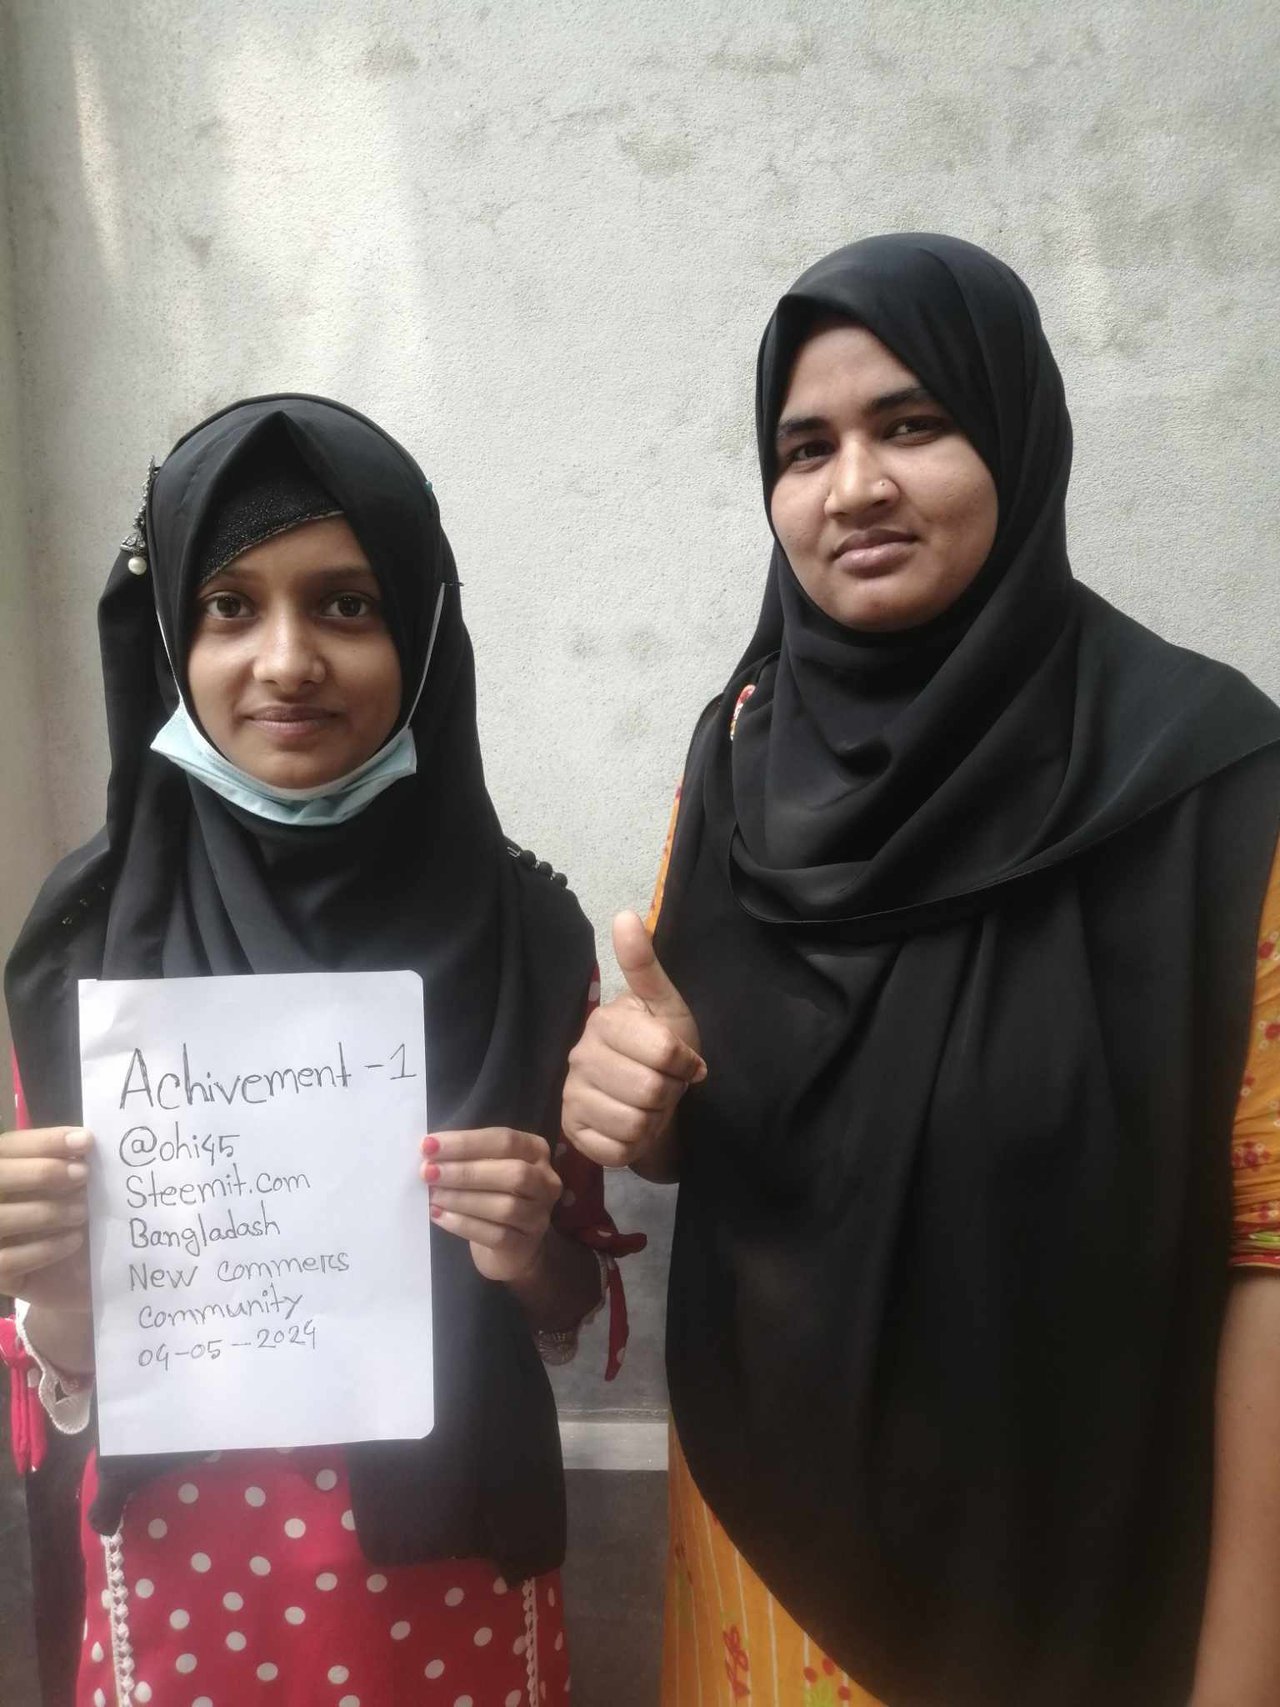 Achivement -1
@ohi45
Steemit.com
Bangladash
New commers
community
04-05-2024